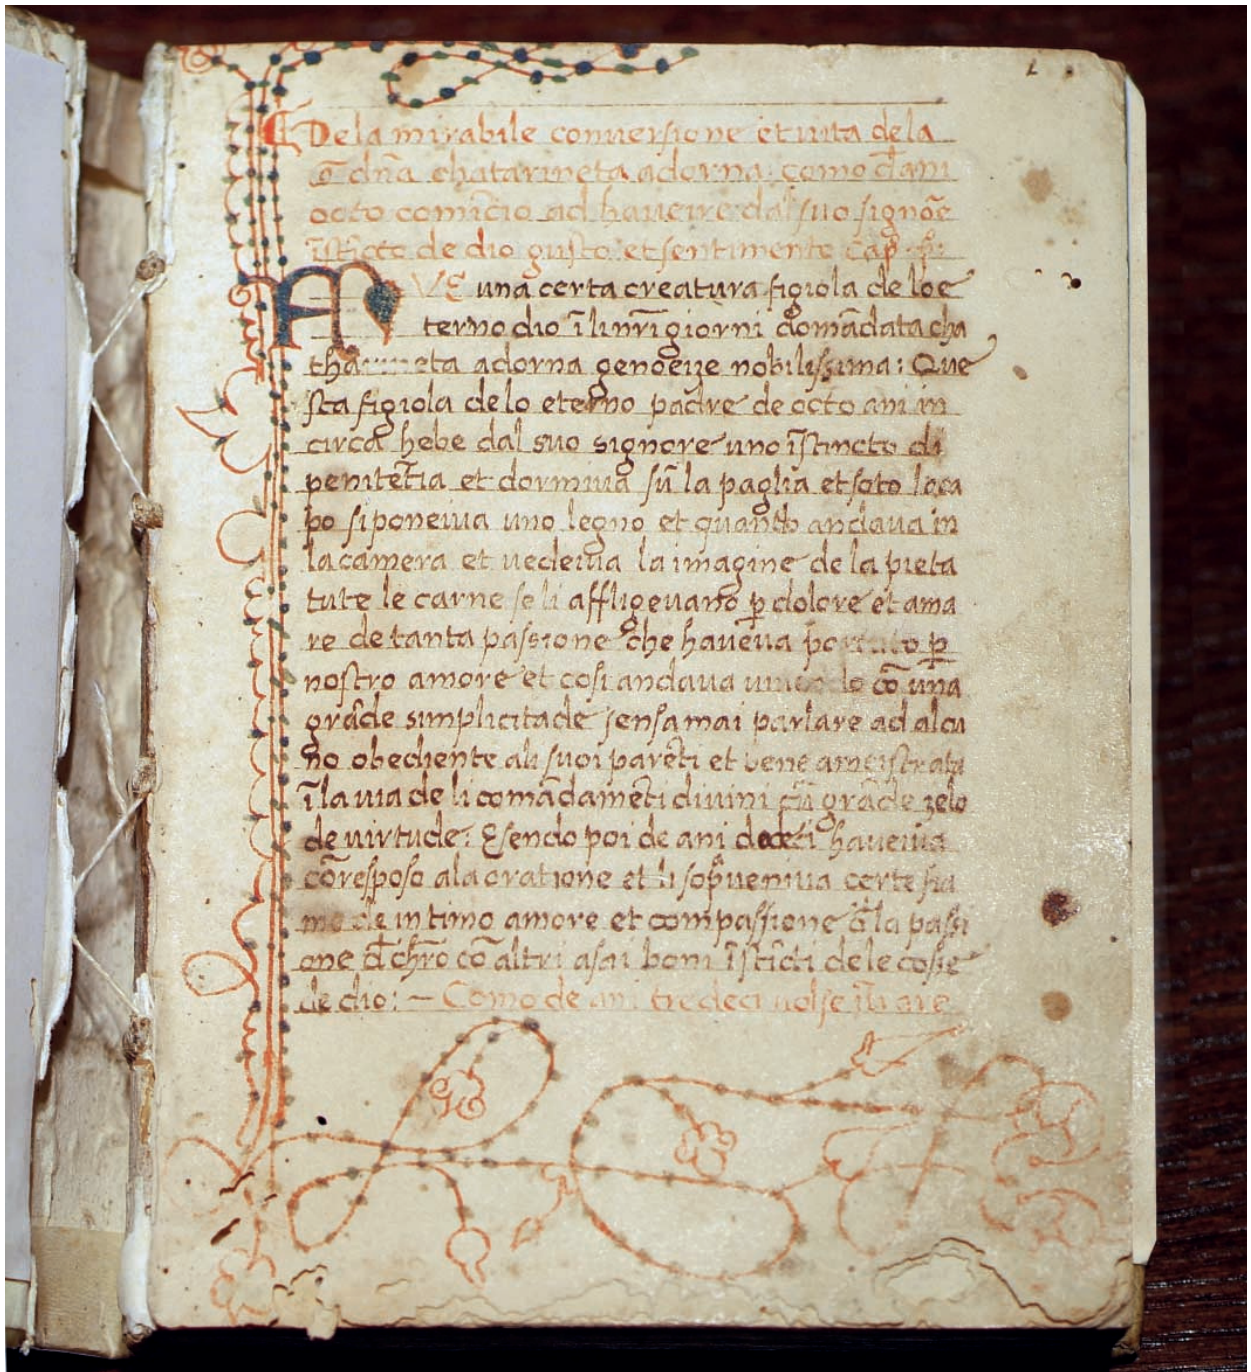 De la mirabile conversione et vita de la
dña chatarineta adorna: como d̄ ani
octo comīcio ad haveire dal suo signōe
de dio gusto et sentimento Cap.
AVE una certa creatura figiola de lo e
terno dio ī li nr̄i giorni domādata cha
tharineta adorna genoeize nobilissima: Que
sta figiola de lo eterno padre de octo ani in
circa hebe dal suo signore uno īstincto di
penitētia et dormiva sū la paglia et soto lo ca
po si poneiva uno legno et quando andava in
la camera et vedeiva la imagine de la pieta
tute le carne se li affligevano p̄ dolore et amo
re de tanta passione che haveva portato p̄
nostro amore et cosi andava vivendo cō una
grāde simplicitade sensa mai parlare ad alcu
no obediente ali suoi parēti et bene ameistrata
ī la via de li comādamēti divini cū grāde zelo
de virtude: Esendo poi de ani dodeci haveiva
cōresposo a la oratione et li sop̄veniva certe fia
me de intimo amore et compassione d̄ la passi
one d̄ chr̄o cō altri asai boni īstīcti de le cose
de dio: – Como de ani tredeci volse ītrare